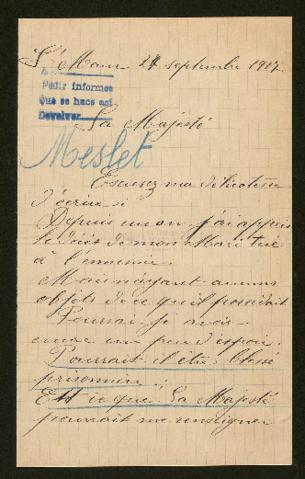 St Maur 24 septembre 1917
Pedir informes
Que se hace así
Devolver
Sa Majesté
Meslet
Excusez ma
d'écrire :
Depuis un an j'ai appris
le décès de mon Mari tué
à l'ennemie.
Mais n'ayant aucuns
objets de ce qu'il possédait
Pourrai-je avoir
encore un peu d'espoir.
Pourrait il être blessé
prisonnier ;
Est ce que Sa Majesté
pourrait me renseigner